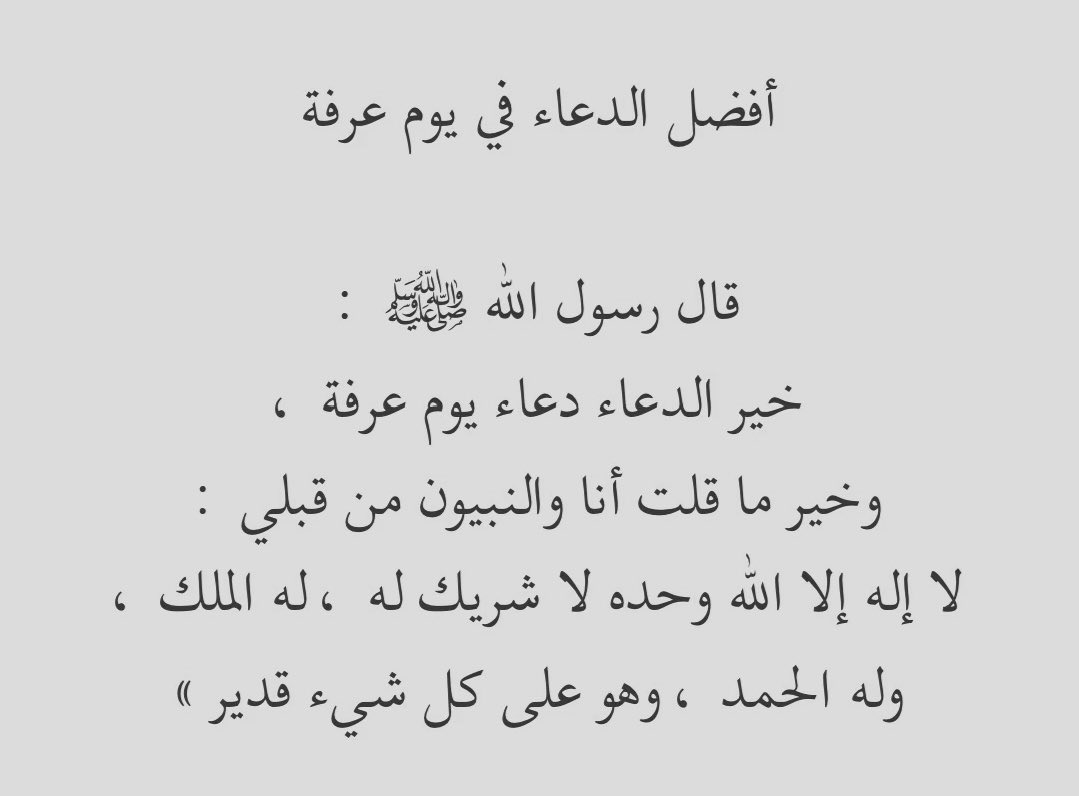 أفضل الدعاء في يوم عرفة
قال رسول الله ﷺ :
خير الدعاء دعاء يوم عرفة ،
وخير ما قلت أنا والنبيون من قبلي :
لا إله إلا الله وحده لا شريك له ، له الملك ،
وله الحمد ، وهو على كل شيء قدير »